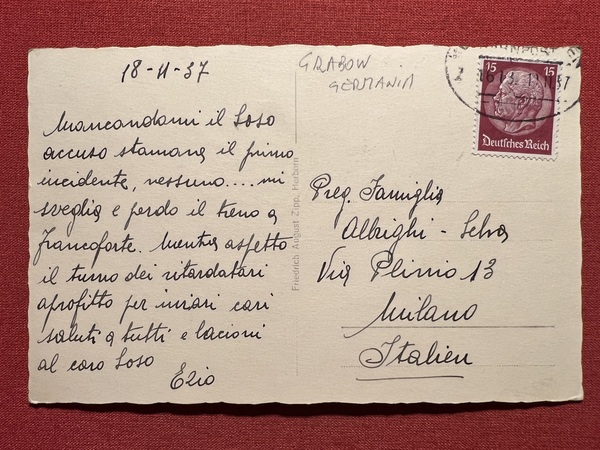 18-11-37
Mancandomi il Soso
accuso stamane il primo
incidente, nessuno.... mi
sveglia e perdo il treno a
Francoforte. Mentre aspetto
il turno dei ritardatari
aprofitto per inviari cari
saluti a tutti e bacioni
al caro Soso
Ezio
Friedrich August Zipp, Herborn
GRABOW
GERMANIA
15 15
Deutsches Reich
Preg. Famiglia
Albrighi - Selva
Via Plinio 13
Milano
Italien